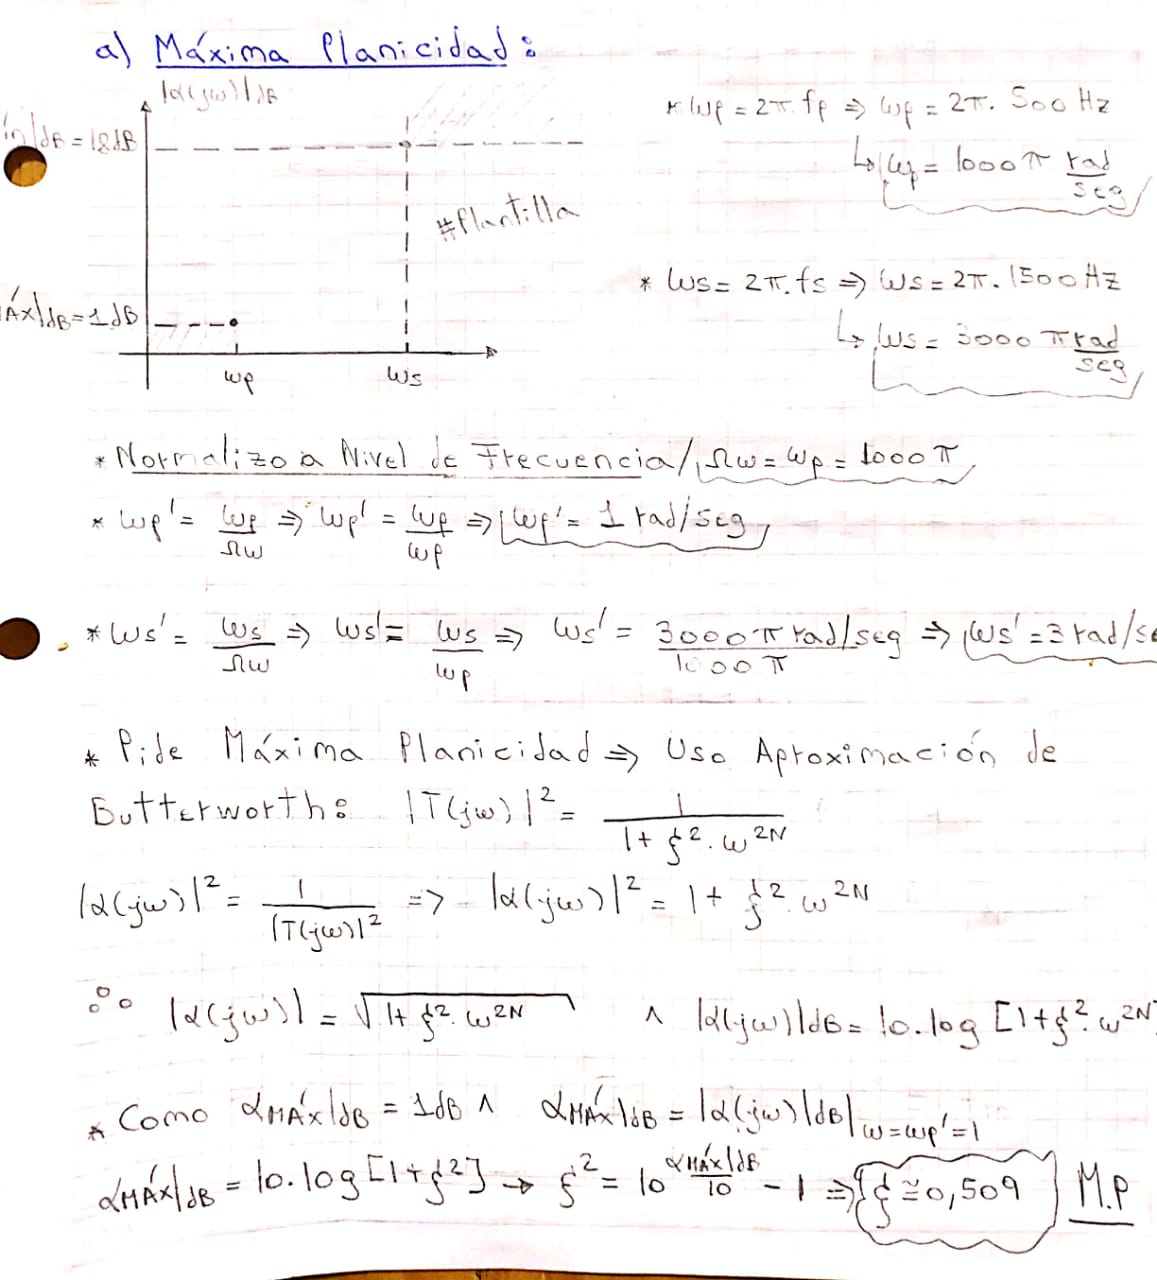 a) Máxima Planicidad:
|α(jω)|dB
ín|dB = 18dB
#Plantilla
ÁX|dB = 1dB
ωp ωs
* ωp = 2π.fp ⇒ ωp = 2π. 500 Hz
↳ ωp = 1000 π rad/seg
* ωs = 2π.fs ⇒ ωs = 2π. 1500 Hz
↳ ωs = 3000 π rad/seg
* Normalizo a Nivel de Frecuencia / Ωω = ωp = 1000 π
* ωp' = ωp/Ωω ⇒ ωp' = ωp/ωp ⇒ ωp' = 1 rad/seg
* ωs' = ωs/Ωω ⇒ ωs' = ωs/ωp ⇒ ωs' = 3000 π rad/seg / 1000 π ⇒ ωs' = 3 rad/se
* Pide Máxima Planicidad ⇒ Uso Aproximación de
Butterworth: |T(jω)|² = 1/(1 + ξ². ω^2N)
|α(jω)|² = 1/|T(jω)|² => |α(jω)|² = 1 + ξ². ω^2N
∴ |α(jω)| = √(1 + ξ². ω^2N) ∧ |α(jω)|dB = 10.log [1 + ξ². ω^2N]
* Como αMÁX|dB = 1dB ∧ αMÁX|dB = |α(jω)|dB|ω=ωp'=1
αMÁX|dB = 10.log [1 + ξ²] → ξ² = 10^(αMÁX|dB/10) - 1 ⇒ ξ ≅ 0,509 M.P